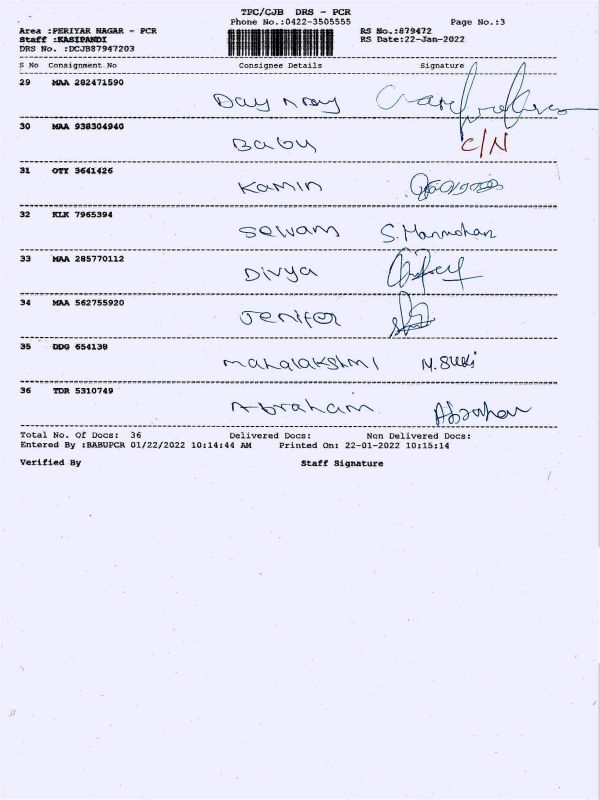 TPC/CJB DRS - PCR
Phone No.:0422-3505555 Page No.:3
Area :PERIYAR NAGAR - PCR RS No.:879472
Staff :KASIPANDI RS Date:22-Jan-2022
DRS No. :DCJB87947203
S No Consignment No Consignee Details Signature
29 MAA 282471590
30 MAA 938304940 Babu C/N
31 OTY 3641426 Kamin
32 KLK 7965394 Selvam S.Manmohan
33 MAA 285770112 Divya
34 MAA 562755920 Jenifer
35 DDG 654138 Mahalakshmi
36 TDR 5310749 Abraham Abraham
Total No. Of Docs: 36 Delivered Docs: Non Delivered Docs:
Entered By :BABUPCR 01/22/2022 10:14:44 AM Printed On: 22-01-2022 10:15:14
Verified By Staff Signature